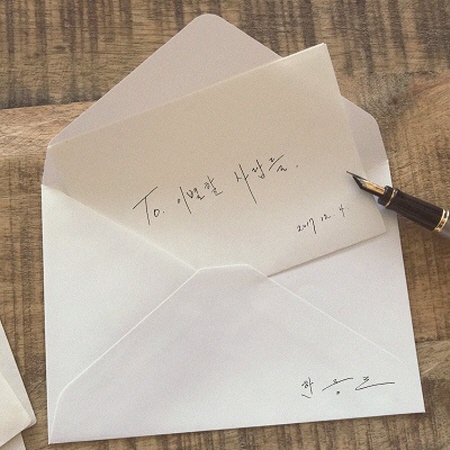 To. 이별할 사람들.
2017. 12. 4
한승